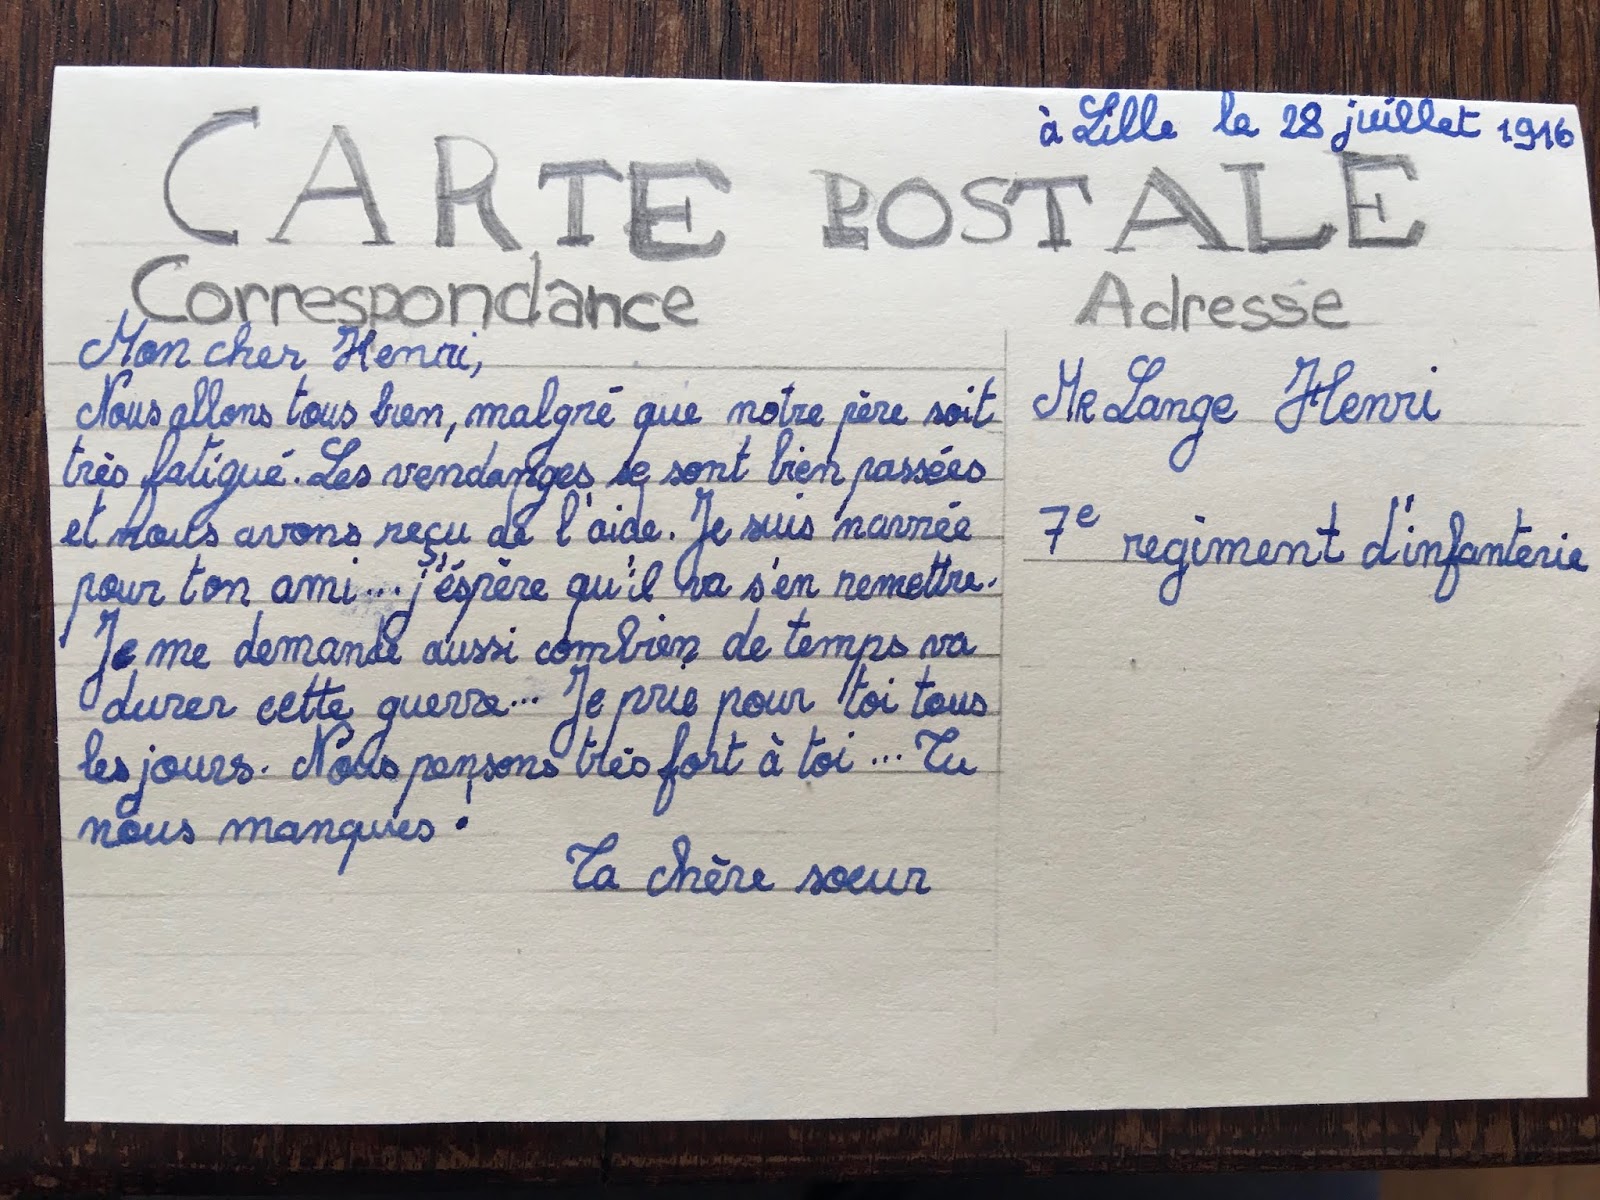 à Lille le 28 juillet 1916
CARTE POSTALE
Correspondance
Mon cher Henri,
Nous allons tous bien, malgré que notre père soit
très fatigué. Les vendanges se sont bien passées
et nous avons reçu de l'aide. Je suis navrée
pour ton ami... j'éspère qu'il va s'en remettre.
Je me demande aussi combien de temps va
durer cette guerre... Je prie pour toi tous
les jours. Nous pensons très fort à toi ... Tu
nous manques !
Ta chère soeur
Adresse
MR Lange Henri
7e regiment d'infanterie